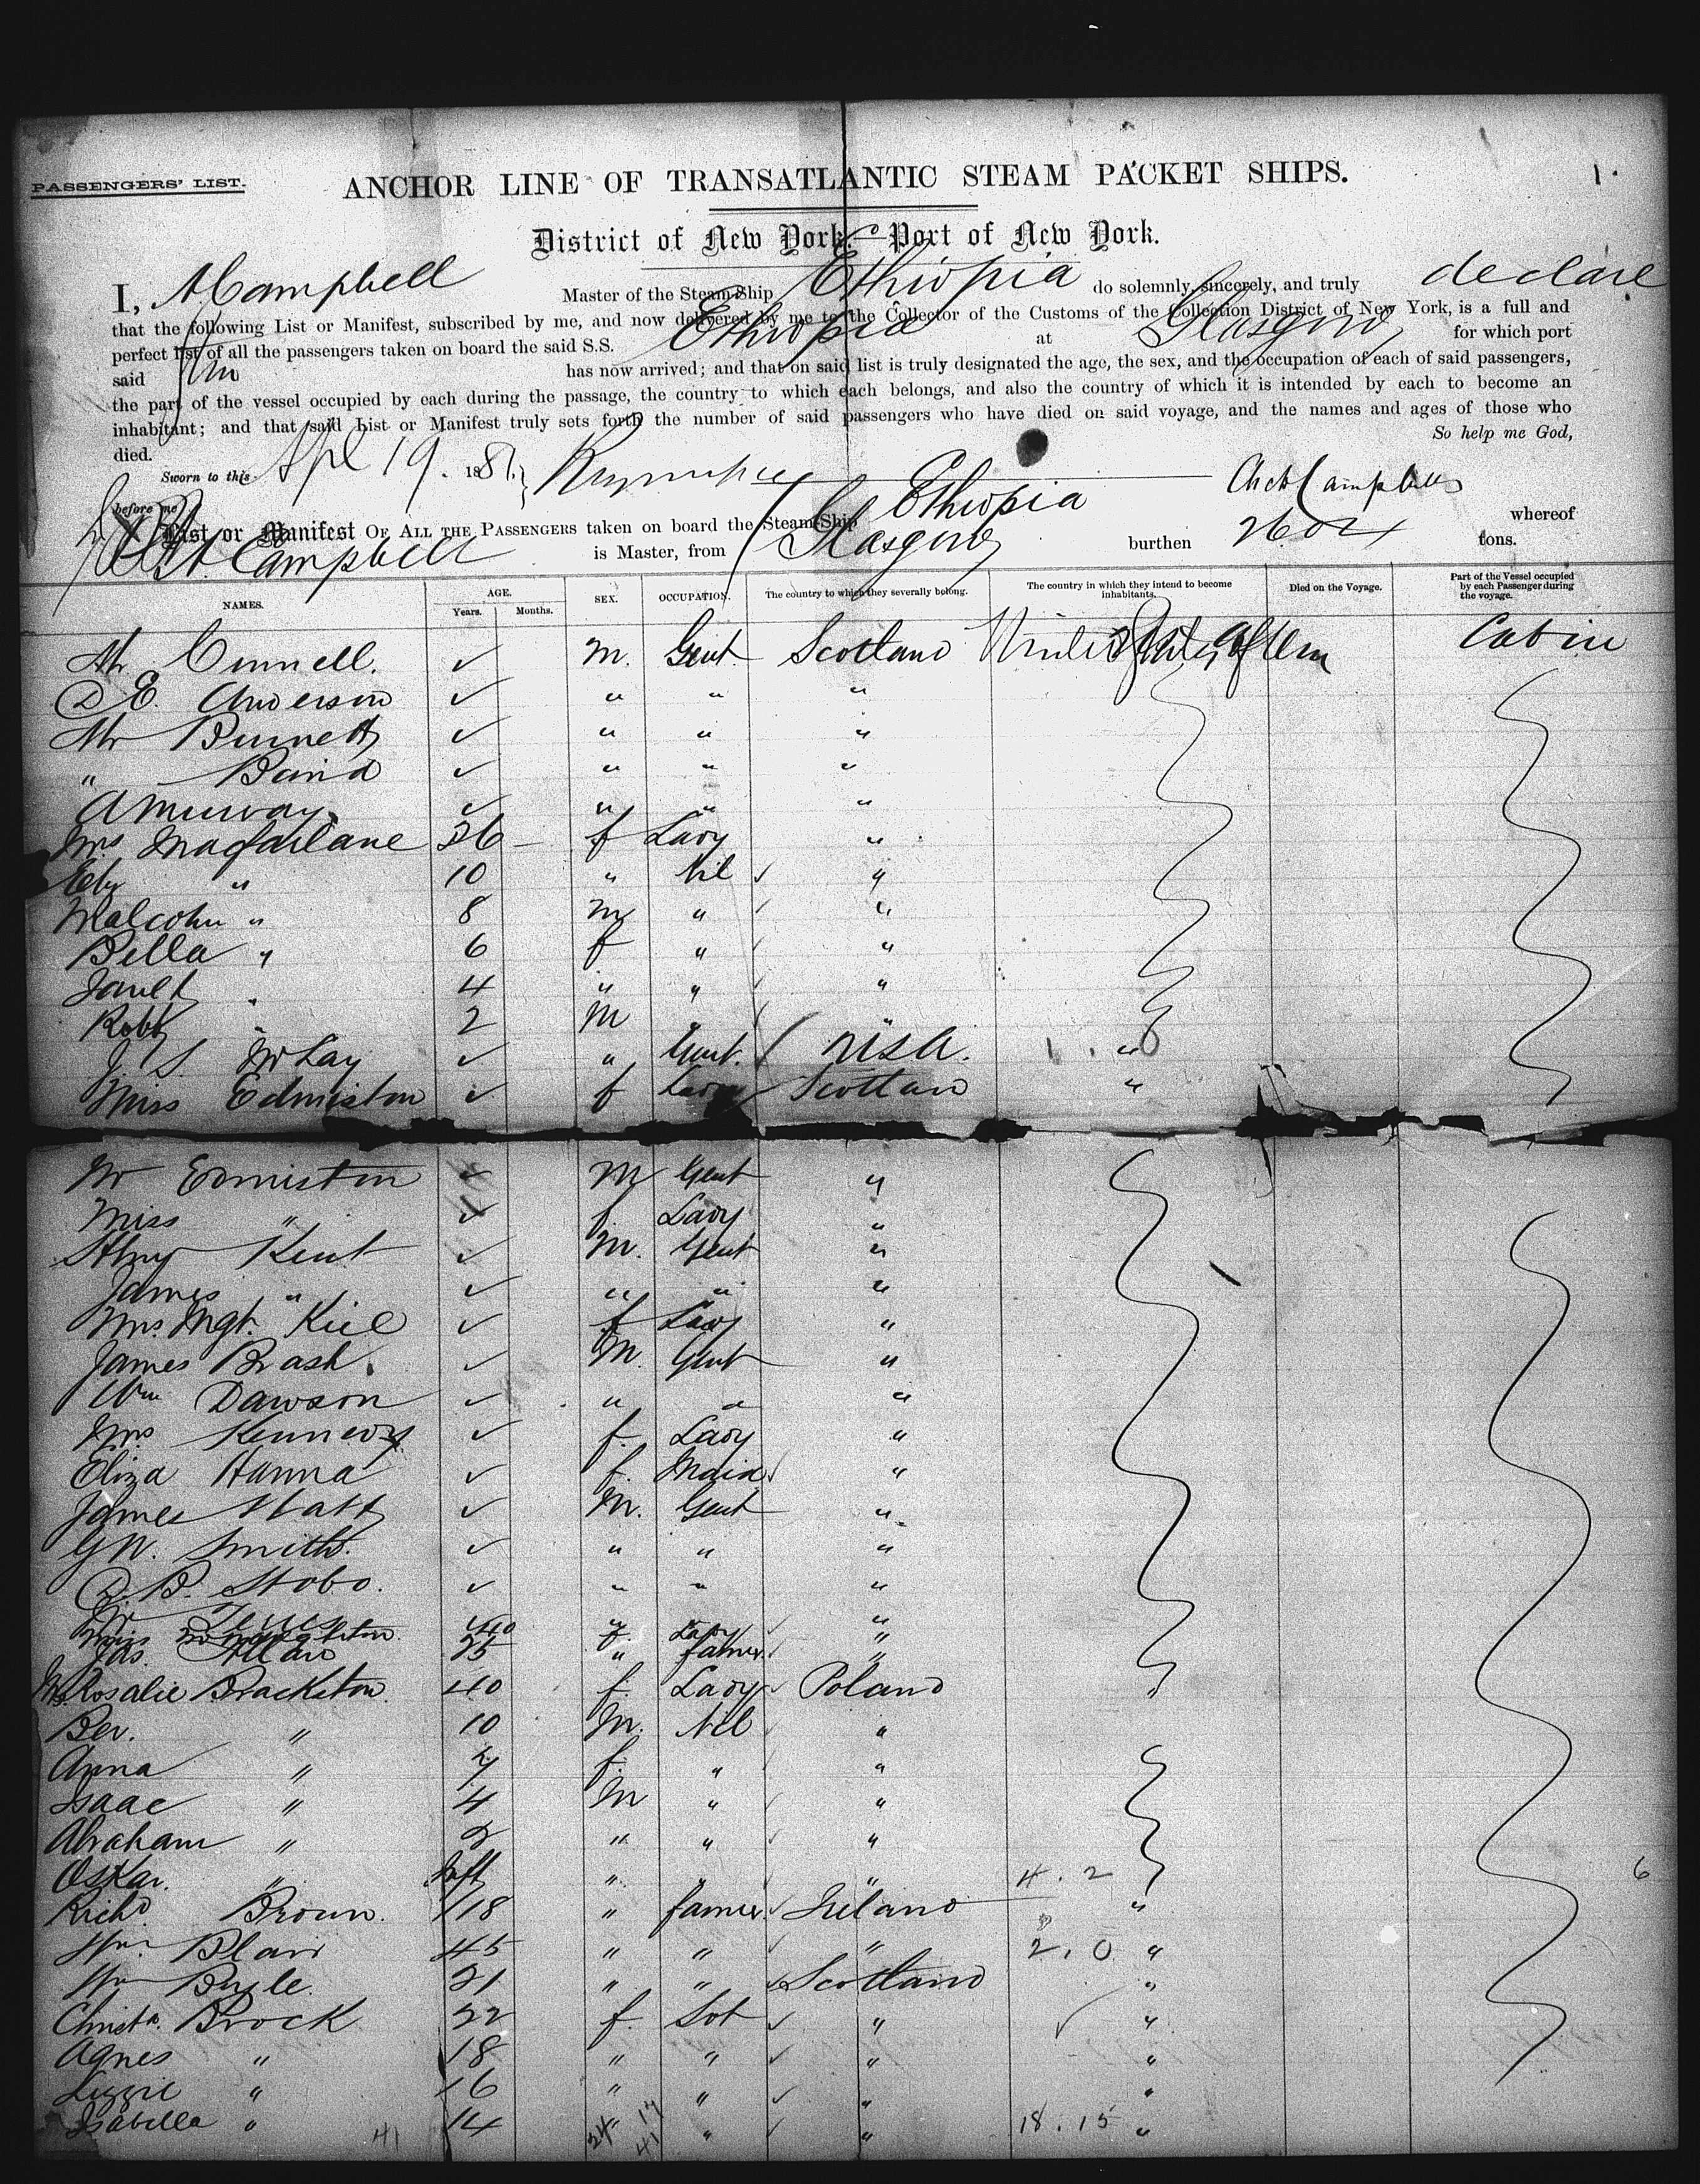 PASSENGERS' LIST.
1.
ANCHOR LINE OF TRANSATLANTIC STEAM PACKET SHIPS.
District of New York.—Port of New York.
I, A Campbell Master of the Steam Ship Ethiopia do solemnly, sincerely, and truly declare
that the following List or Manifest, subscribed by me, and now delivered by me to the Collector of the Customs of the Collection District of New York, is a full and
perfect list of all the passengers taken on board the said S.S. Ethiopia at Glasgow for which port
said has now arrived; and that on said list is truly designated the age, the sex, and the occupation of each of said passengers,
the part of the vessel occupied by each during the passage, the country to which each belongs, and also the country of which it is intended by each to become an
inhabitant; and that said List or Manifest truly sets forth the number of said passengers who have died on said voyage, and the names and ages of those who
died. So help me God,
Sworn to this Apl 19. 1881. Campbell
before me
List or Manifest OF ALL THE PASSENGERS taken on board the Steam Ship Ethiopia whereof
Campbell is Master, from Glasgow burthen 2604 tons.
NAMES. AGE. Years. Months. SEX. OCCUPATION. The country to which they severally belong. The country in which they intend to become inhabitants. Died on the Voyage. Part of the Vessel occupied by each Passenger during the voyage.
Mr Connell. ✓ M. Gent Scotland United States of Cabin
D E. Anderson ✓ " " "
Mr Burnett ✓ " " "
" Baird ✓ " " "
A ✓ " " "
Mrs Macfarlane 36 f Lady "
" 10 " Nil ✓ "
Malcolm " 8 M " "
Bella " 6 f " "
Janet " 4 " " "
Robt " 2 M " "
J S McLay ✓ " Gent. USA. "
Miss Edmiston ✓ f Lady Scotland "
Mr Edmiston ✓ M Gent "
Miss " ✓ f Lady "
Kent ✓ M. Gent "
James " ✓ " " "
Mrs Mgt. ✓ f Lady "
James Brash. ✓ M. Gent "
Wm Dawson ✓ " " "
Mrs Kennedy ✓ f. Lady "
Eliza Hanna ✓ f. Maid "
James Watt ✓ M. Gent "
G W. Smith. ✓ " " "
B. Stobo. ✓ " " "
Mr "
Miss 40 f. Lady "
Jas. Allan 25 " farmer "
Mrs Rosalie Brackston 40 f. Lady Poland
Ber. " 10 M. Nil "
Anna " 7 f. " "
Isaac " 4 M " "
Abraham " 2 " " "
Oskar. " Inft " " " 4.2 6
Richd. Brown. 18 " farmer. Ireland "
Wm. Blair 45 " " " 2.0 "
Wm 21 " " Scotland "
Christa. Brock 22 f. ✓ " ✓ "
Agnes " 18 " " ✓ " "
Lizzie " 16 " " ✓ " "
Isabella " 14 " " " 18.15 "
41 24 17 41